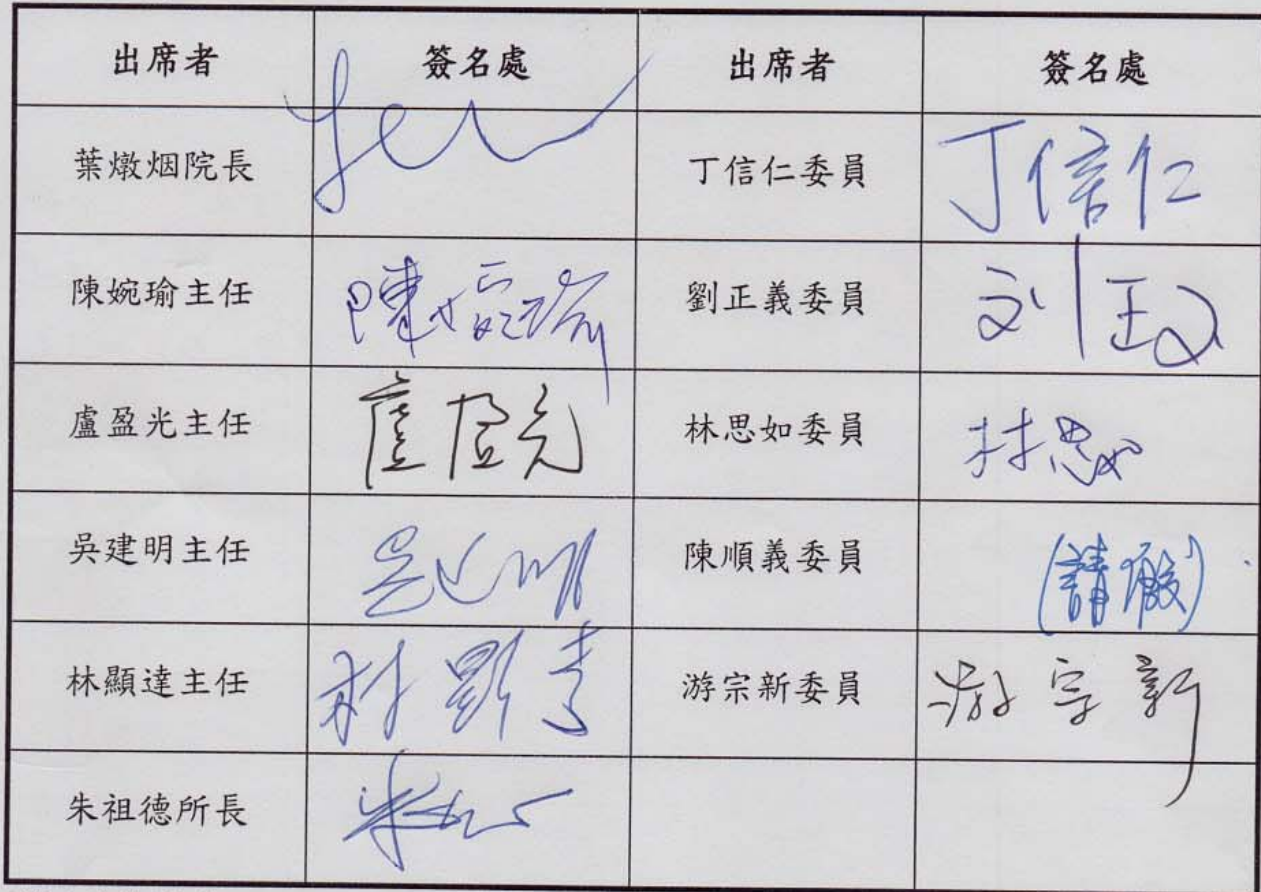 出席者 簽名處 出席者 簽名處
葉燉烟院長 丁信仁委員 丁信仁
陳婉瑜主任 陳婉瑜 劉正義委員
盧盈光主任 盧盈光 林思如委員 林思如
吳建明主任 吳建明 陳順義委員 (請假)
林顯達主任 林顯達 游宗新委員 游宗新
朱祖德所長